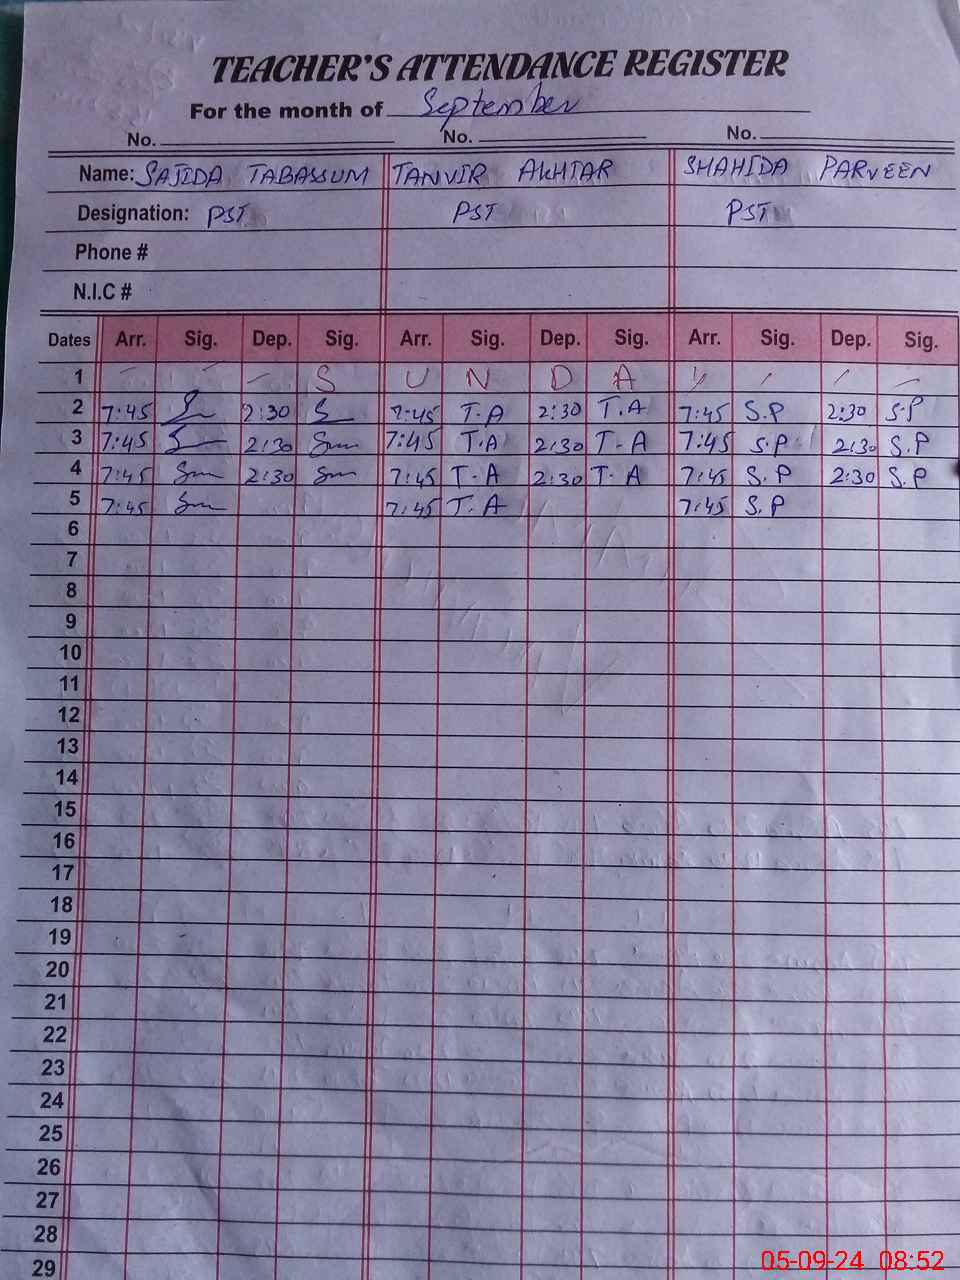 TEACHER'S ATTENDANCE REGISTER
For the month of September
No. No. No.
Name: SAJIDA TABASSUM TANVIR AKHTAR SHAHIDA PARVEEN
Designation: PST PST PST
Phone #
N.I.C #
Dates Arr. Sig. Dep. Sig. Arr. Sig. Dep. Sig. Arr. Sig. Dep. Sig.
1 S U N D A Y
2 7:45 2:30 7:45 T.A 2:30 T.A 7:45 S.P 2:30 S.P
3 7:45 2:30 7:45 T.A 2:30 T-A 7:45 S.P 2:30 S.P
4 7:45 2:30 7:45 T-A 2:30 T-A 7:45 S.P 2:30 S.P
5 7:45 7:45 T.A 7:45 S.P
6
7
8
9
10
11
12
13
14
15
16
17
18
19
20
21
22
23
24
25
26
27
28
29
05-09-24 08:52